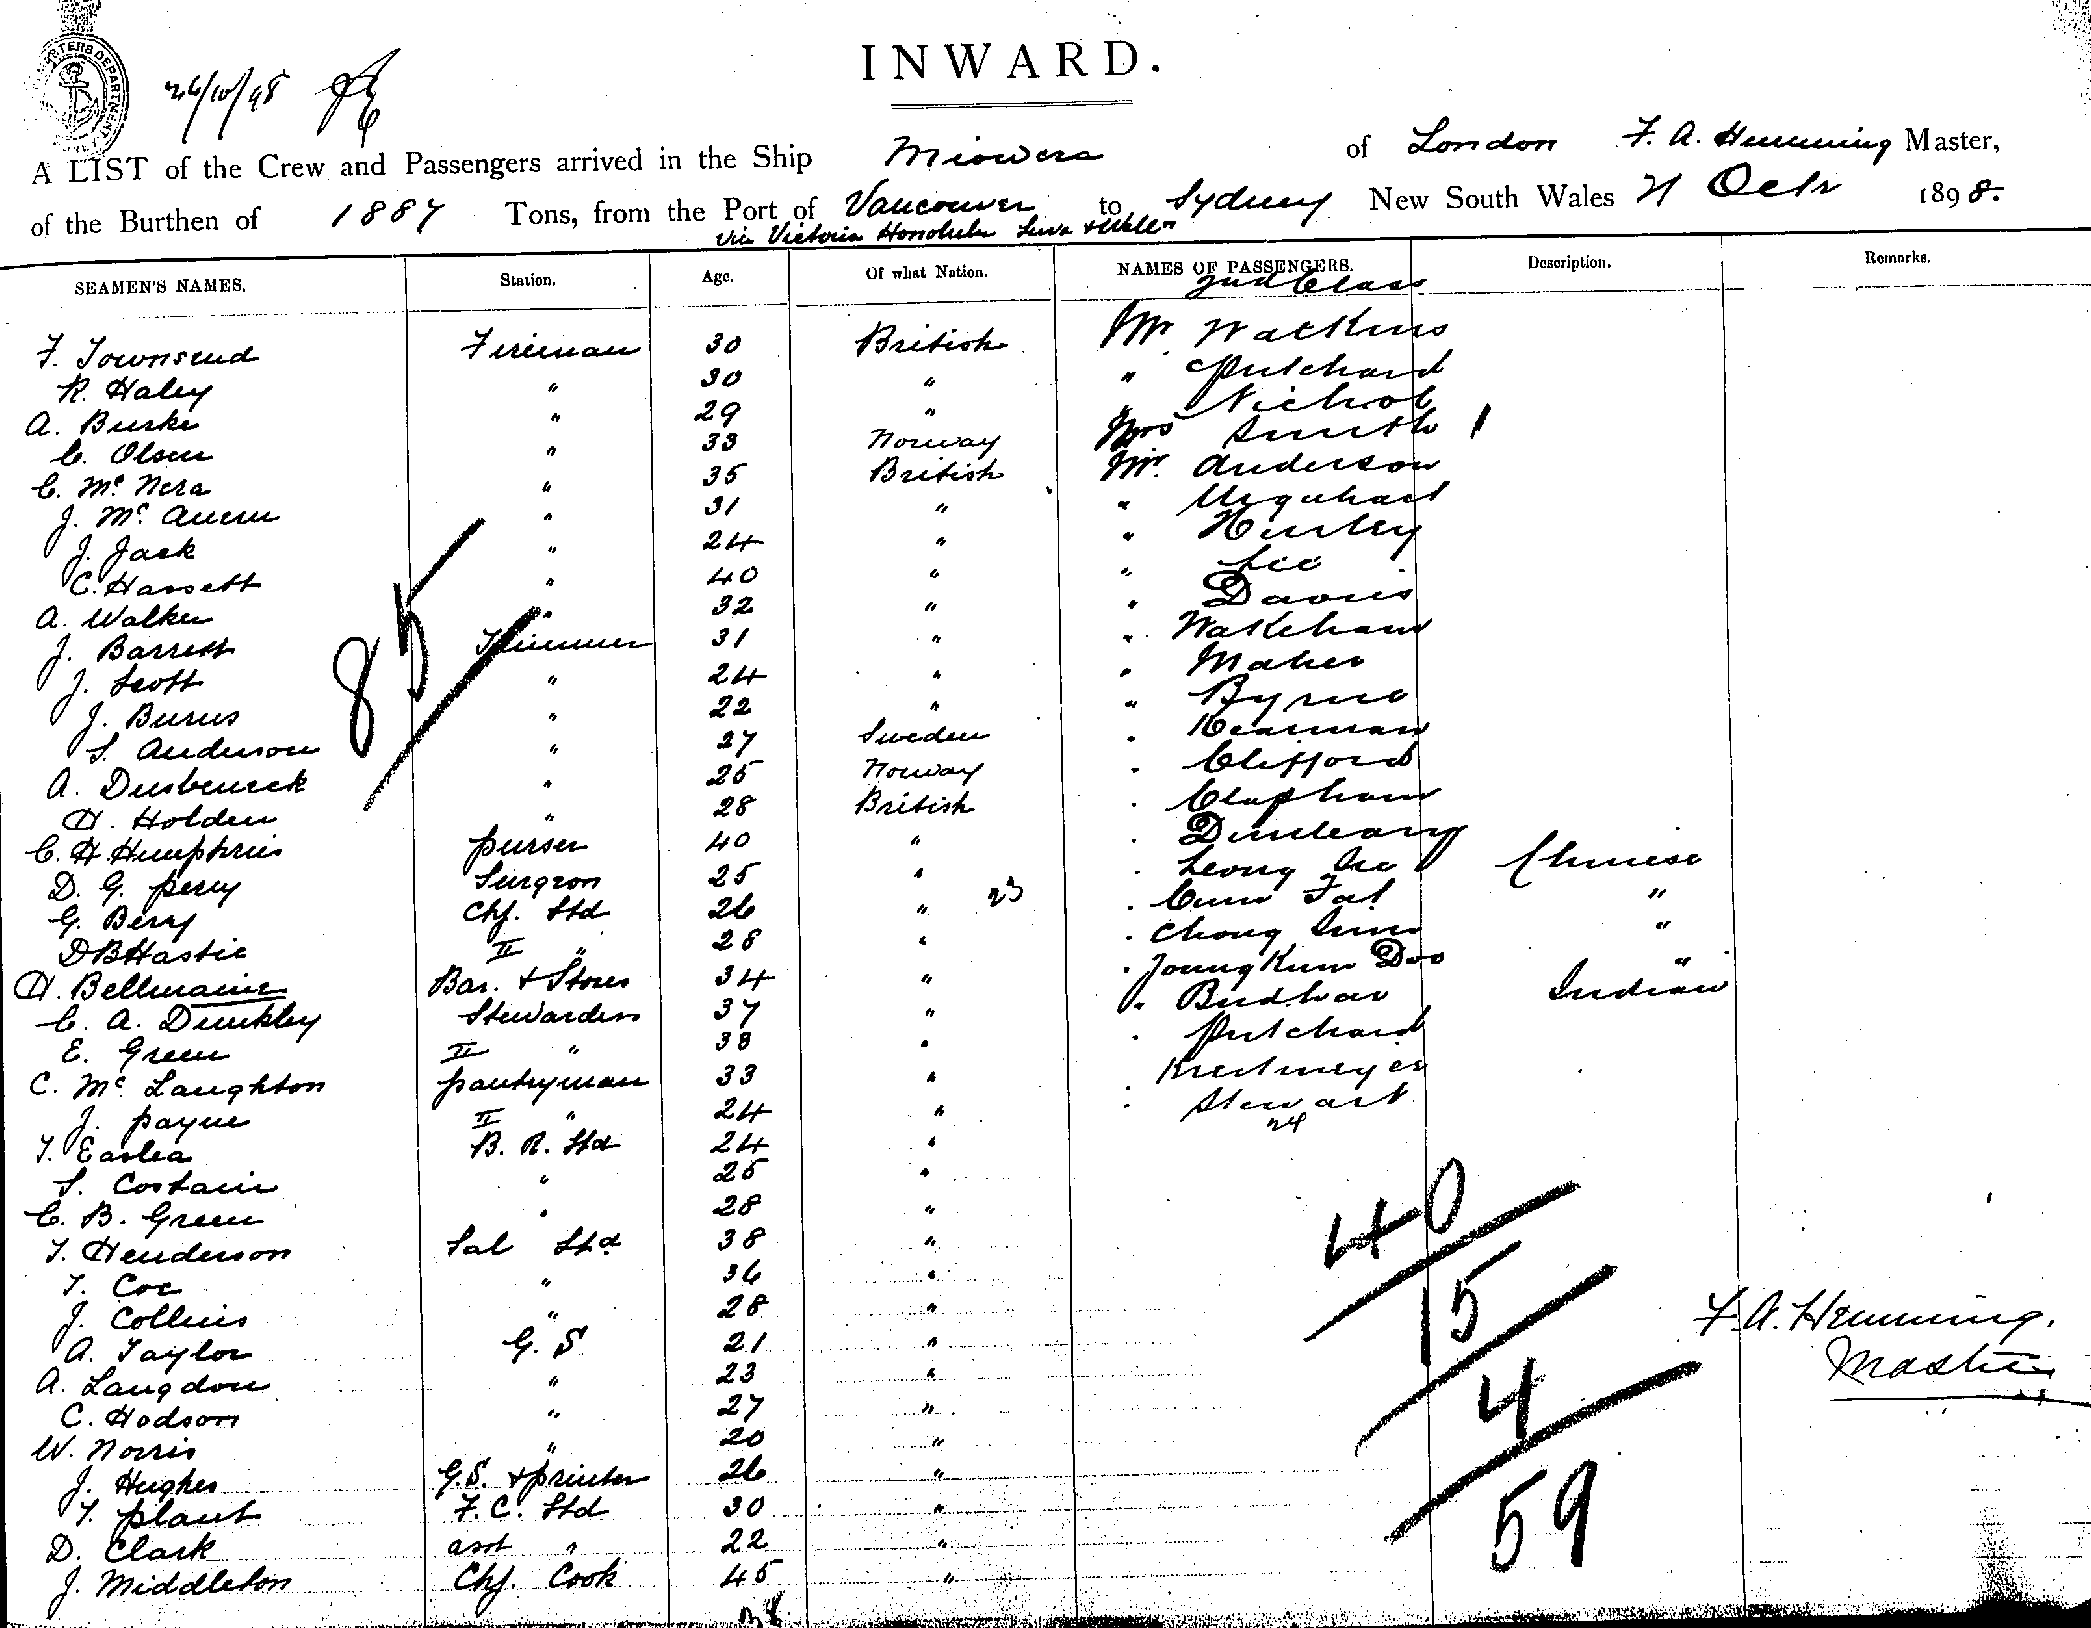 INWARD.
26/10/98
A LIST of the Crew and Passengers arrived in the Ship Miowera of London F. A. Hemming Master,
of the Burthen of 1887 Tons, from the Port of Vancouver to Sydney New South Wales 21 Octr 1898.
via Victoria Honolulu Suva
SEAMEN'S NAMES. Station. Age. Of what Nation. NAMES OF PASSENGERS. Description. Remarks.
2nd Class
F. Townsend Fireman 30 British Mr Watkins
R. Haley " 30 " " Pritchard
A. Burke " 29 " " Nichol
C. Olsen " 33 Norway Mrs Smith 1
C. Mc Nera " 35 British Mr. Anderson
J. Mc " 31 " " Urquhart
J. Jack " 24 " " Hurley
C. Hassett " 40 " " Lee
A. Walker " 32 " " Davies
J. Barrett Trimmer 31 " " Wakeham
J. Scott " 24 " " Maher
J. Burns " 22 " " Byrne
S. Anderson " 27 Sweden "
A. " 25 Norway " Clifford
H. Holden " 28 British " Clapham
C. H. Humphries purser 40 " "
D. G. perry Surgeon 25 " " Leong Chinese
G. Berry Chf. Std 26 " 23 " "
D B Hastie II " 28 " " Chong "
H. Bellmaine Bar. & Stores 34 " " Young Kum "
C. A. Dunkley Stewardess 37 " " Budhar Indian
E. Green II " 38 " " Pritchard
C. Mc Laughton pantryman 33 " "
J. payne II " 24 " " Stewart
24
T. Easlea B. R. Std 24 "
S. Costain " 25 "
C. B. Green " 28 "
T. Henderson Sal Std 38 "
T. Coe " 36 "
J. Collins " 28 "
A. Taylor G. S 21 "
A. Langdon " 23 "
C. Hodson " 27 "
W. Norris " 20 "
J. Hughes G.S. & printer 26 "
T. plant F. C. Std 30 "
D. Clark asst " 22 "
J. Middleton Chf. Cook 45 "
38
85
40
15
4
59
F. A. Hemming.
Master